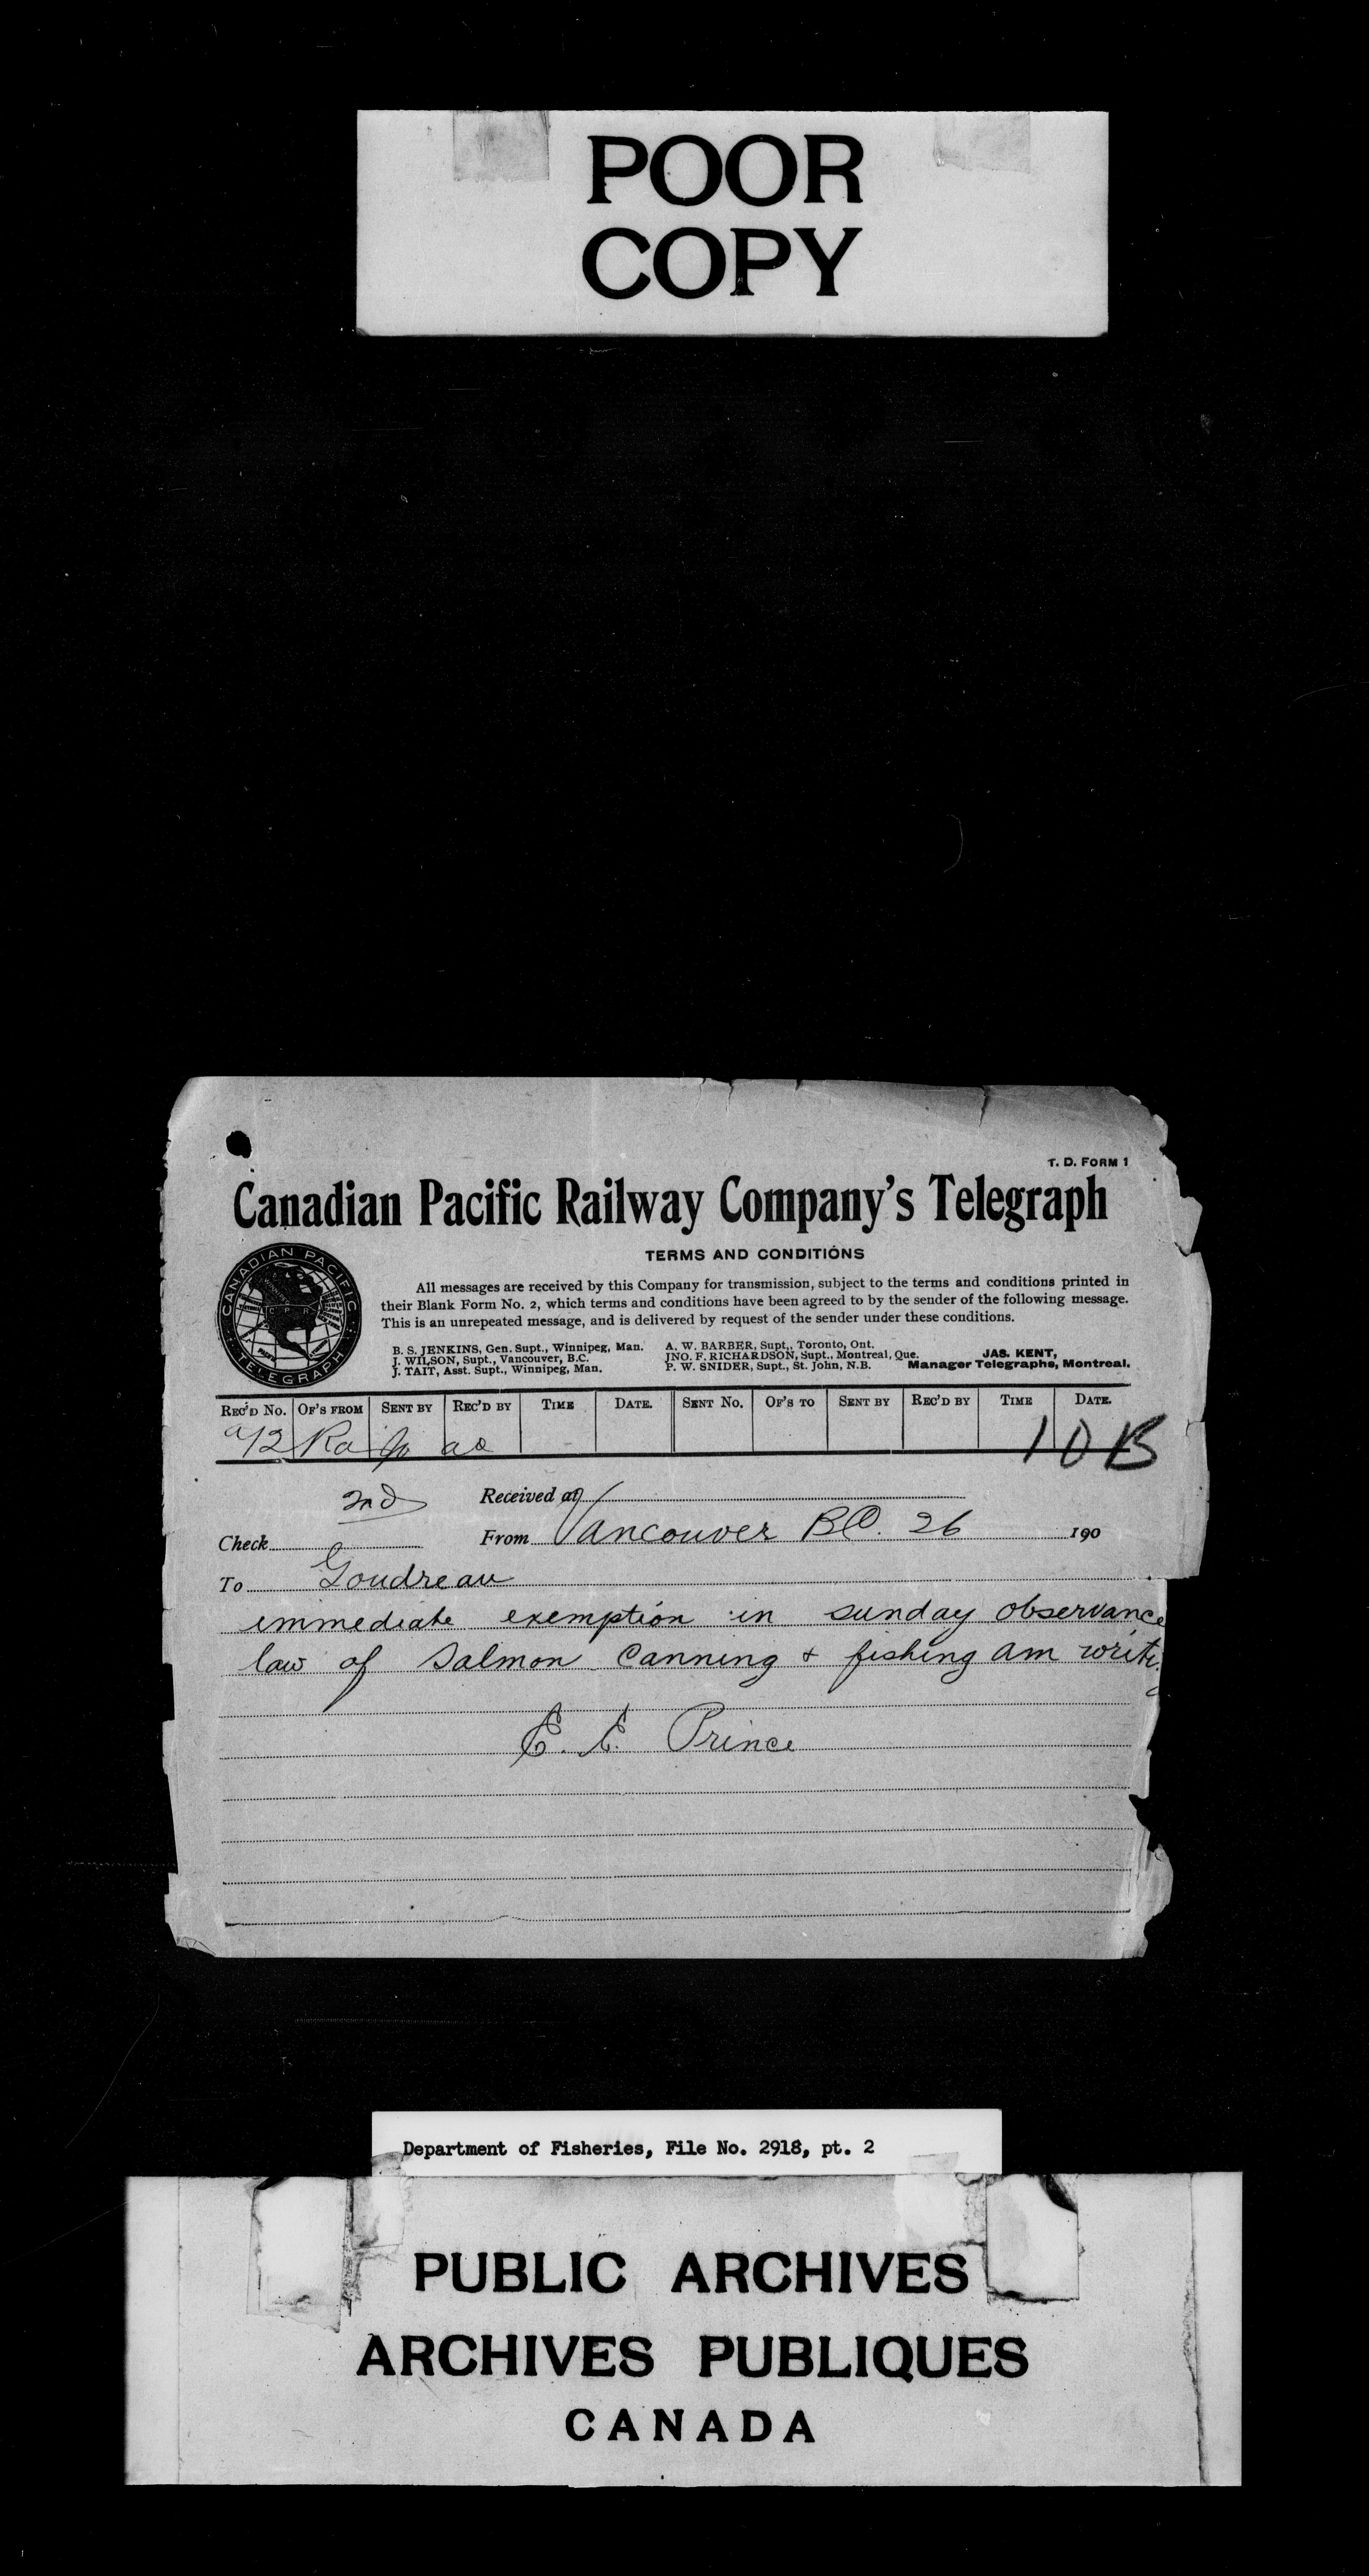 POOR
COPY
T. D. FORM 1
Canadian Pacific Railway Company's Telegraph
TERMS AND CONDITIONS
CANADIAN PACIFIC
C P R
TELEGRAPH
All messages are received by this Company for transmission, subject to the terms and conditions printed in
their Blank Form No. 2, which terms and conditions have been agreed to by the sender of the following message.
This is an unrepeated message, and is delivered by request of the sender under these conditions.
B. S. JENKINS, Gen. Supt., Winnipeg, Man.
J. WILSON, Supt., Vancouver, B.C.
J. TAIT, Asst. Supt., Winnipeg, Man.
A. W. BARBER, Supt., Toronto, Ont.
JNO. F. RICHARDSON, Supt., Montreal, Que.
P. W. SNIDER, Supt., St. John, N.B.
JAS. KENT,
Manager Telegraphs, Montreal.
REC'D No. OF'S FROM SENT BY REC'D BY TIME DATE. SENT No. OF'S TO SENT BY REC'D BY TIME DATE.
Ra 10 B
2nd Received at
Check From Vancouver BC. 26 190
To Goudreau
immediate exemption in sunday observance
law of Salmon Canning & fishing am
E. E. Prince
Department of Fisheries, File No. 2918, pt. 2
PUBLIC ARCHIVES
ARCHIVES PUBLIQUES
CANADA